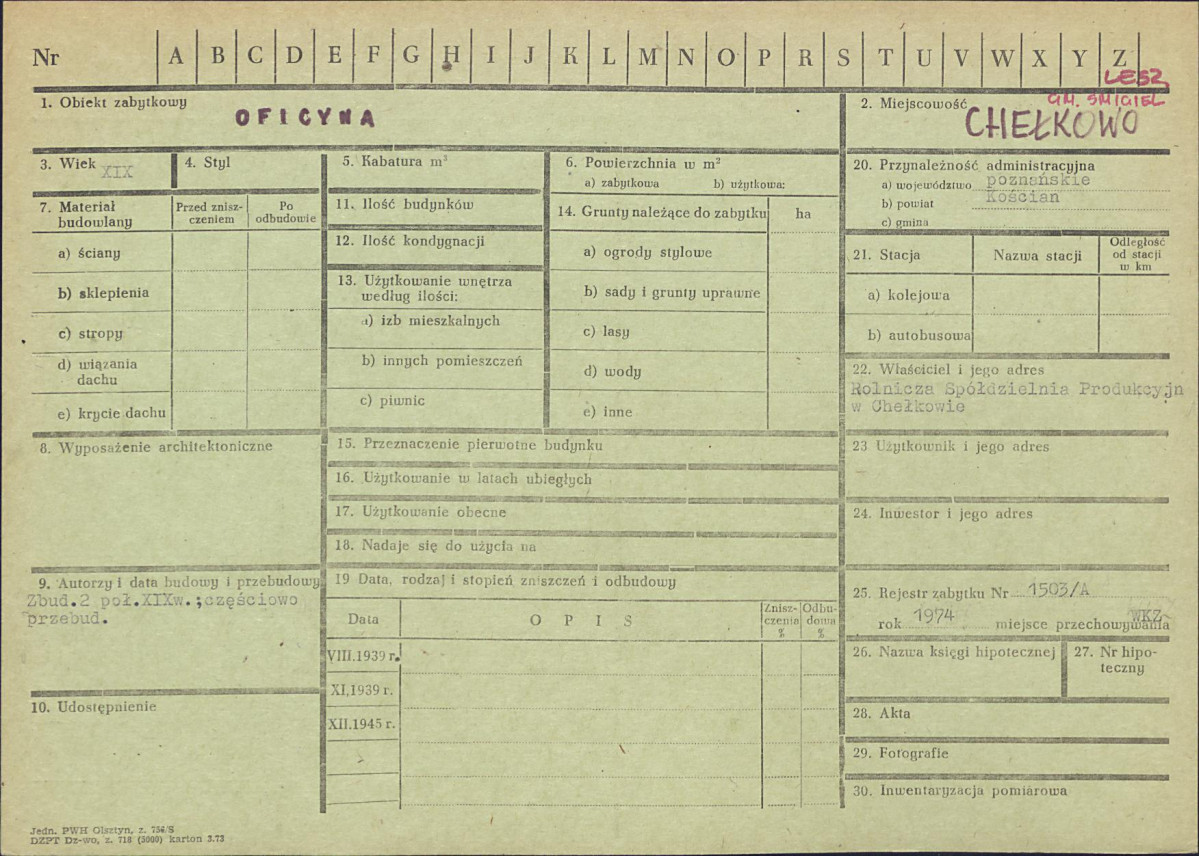 Nr A B C D E F G H I J K L M N O P R S T U V W X Y Z
LESZ
GM. ŚMIGIEL
1. Obiekt zabytkowy
OFICYNA
2. Miejscowość
CHEŁKOWO
3. Wiek XIX
4. Styl
5. Kabatura m³
6. Powierzchnia w m²
a) zabytkowa b) użytkowa:
7. Materiał budowlany
Przed zniszczeniem
Po odbudowie
a) ściany
b) sklepienia
c) stropy
d) wiązania dachu
e) krycie dachu
11. Ilość budynków
12. Ilość kondygnacji
13. Użytkowanie wnętrza
według ilości:
a) izb mieszkalnych
b) innych pomieszczeń
c) piwnic
14. Grunty należące do zabytku ha
a) ogrody stylowe
b) sady i grunty uprawne
c) lasy
d) wody
e) inne
20. Przynależność administracyjna
a) województwo poznańskie
b) powiat Kościan
c) gmina
21. Stacja
Nazwa stacji
Odległość
od stacji
w km
a) kolejowa
b) autobusowa
22. Właściciel i jego adres
Rolnicza Spółdzielnia Produkcyjn
w Chełkowie
8. Wyposażenie architektoniczne
15. Przeznaczenie pierwotne budynku
16. Użytkowanie w latach ubiegłych
17. Użytkowanie obecne
18. Nadaje się do użycia na
23 Użytkownik i jego adres
24. Inwestor i jego adres
9. Autorzy i data budowy i przebudowy
Zbud.2 poł.XIXw.;częściowo
przebud.
10. Udostępnienie
19 Data, rodzaj i stopień zniszczeń i odbudowy
Data
O P I S
Zniszczenia %
Odbudowa %
VIII.1939 r.
XI.1939 r.
XII.1945 r.
25. Rejestr zabytku Nr 1503/A
rok 1974 miejsce przechowywania WKZ
26. Nazwa księgi hipotecznej
27. Nr hipoteczny
28. Akta
29. Fotografie
30. Inwentaryzacja pomiarowa
Jedn. PWH Olsztyn, z. 756/S
DZPT Dz-wo, z. 718 (5000) karton 3.73